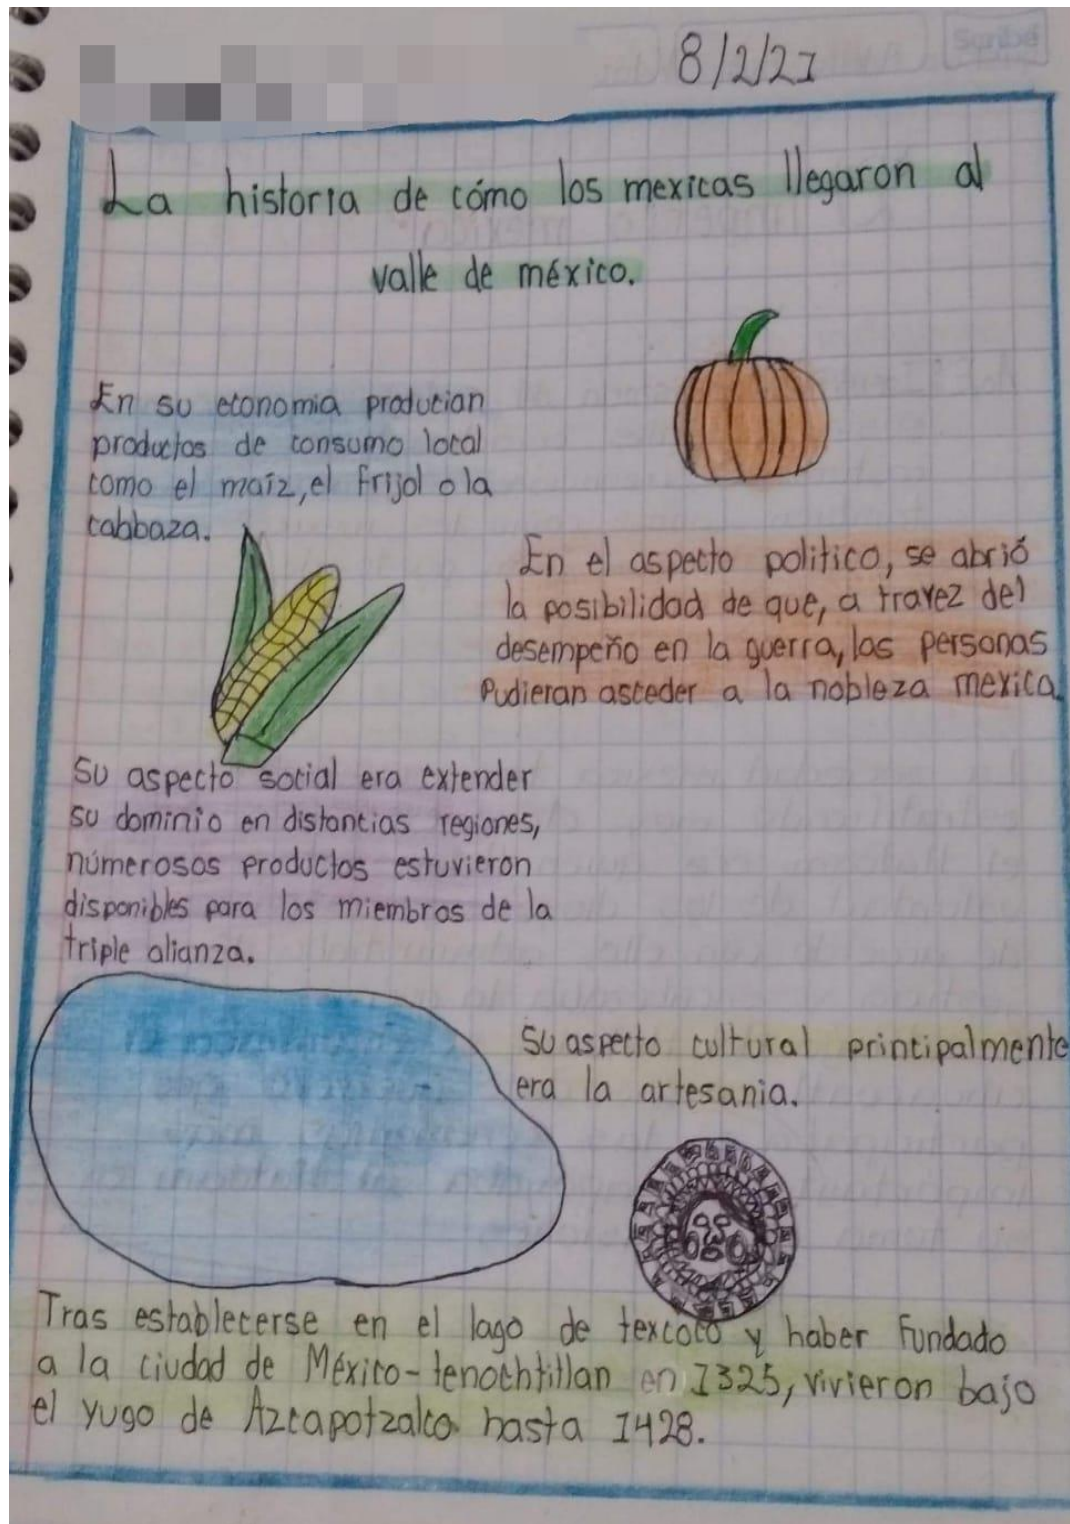 8/2/21
La historia de cómo los mexicas llegaron al
valle de méxico.
En su economia producian
productos de consumo local
como el maíz, el frijol o la
cabbaza.
En el aspecto politico, se abrió
la posibilidad de que, a travez del
desempeño en la guerra, las personas
Pudieran asceder a la nobleza mexica.
Su aspecto social era extender
su dominio en distancias regiones,
númerosos productos estuvieron
disponibles para los miembros de la
triple alianza.
Su aspecto cultural principalmente
era la artesania.
Tras establecerse en el lago de texcoco y haber Fundado
a la ciudad de México-tenochtitlan en 1325, vivieron bajo
el yugo de Azcapotzalco hasta 1428.